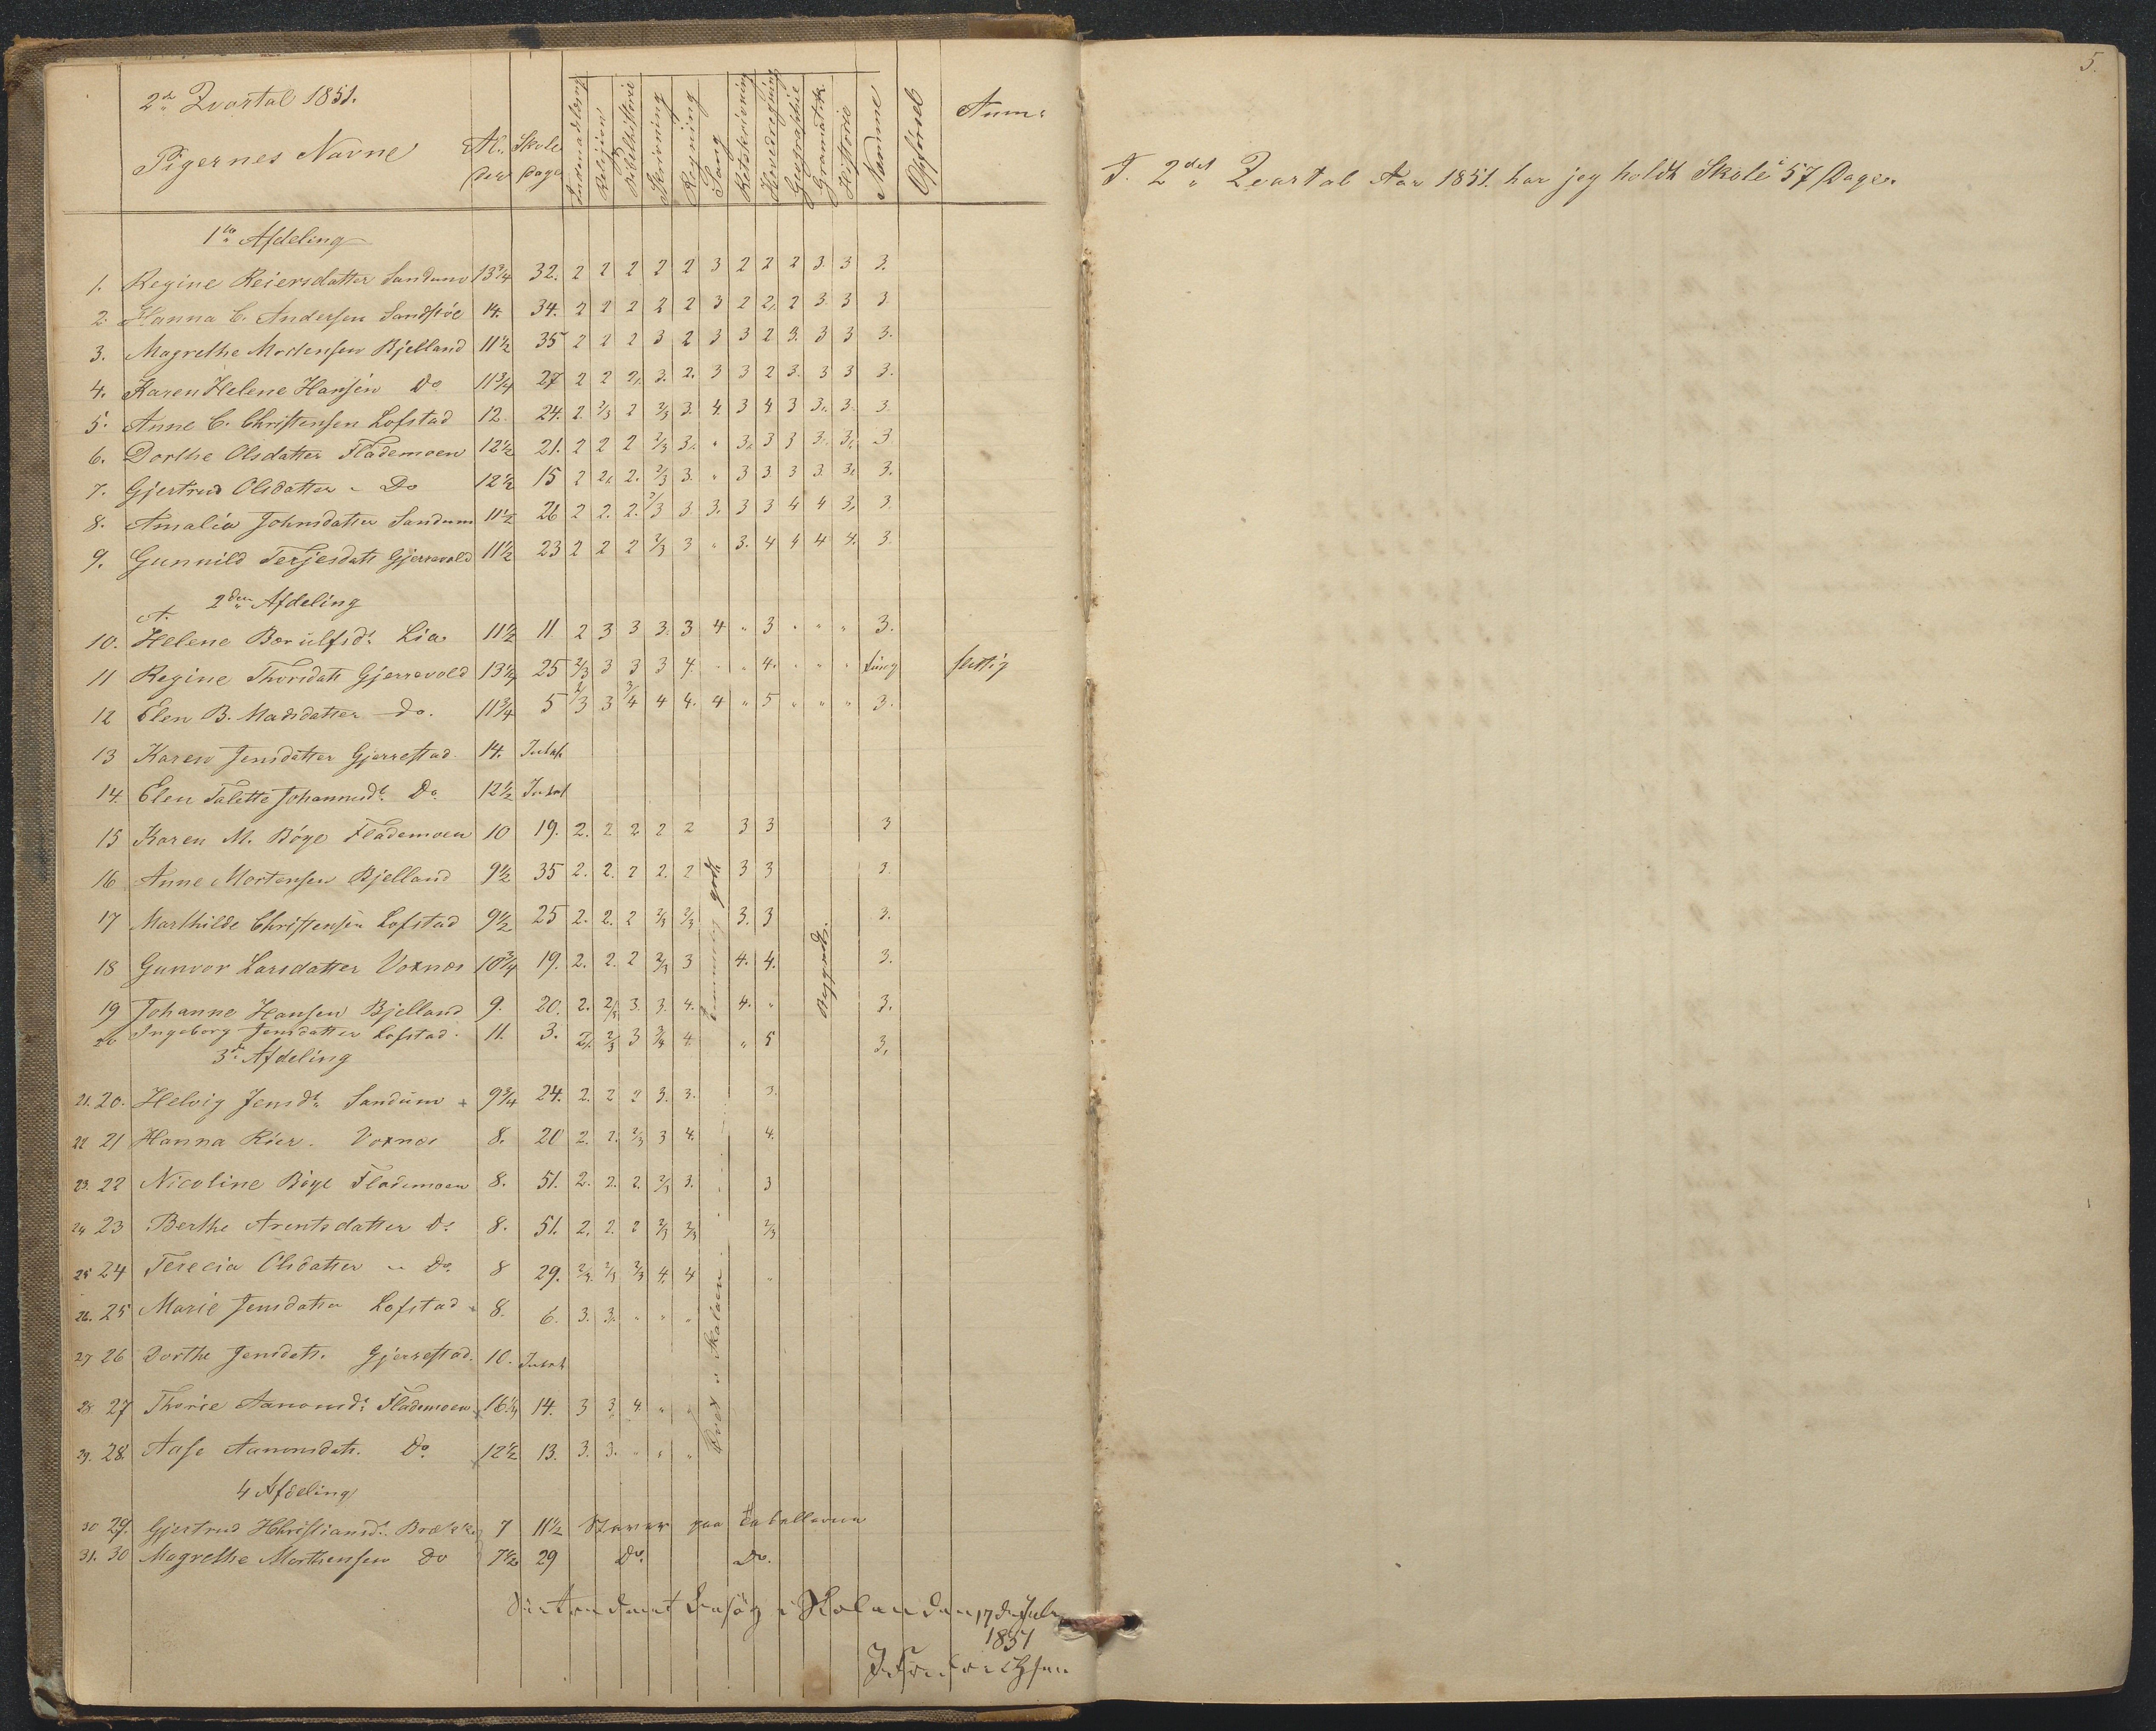 2det Qvartal 1851.
Pigernes Navne Al- der Skole Dage Indenadslæsning Religion Bibelhistorie Skrivning Regning Sang Retskrivning Hovedregning Geographie Gramatik Historie Nemme Opførsel Anm:
1ste Afdeling
1. Regine Reiersdatter Sandum 13 3/4 32. 2 2 2 2 2 3 2 2 2 3. 3 3.
2. Hanna C. Andersen Sandstøe 14. 34. 2 2 2 2 2 3 2 2. 2 3. 3 3
3. Magrethe Mortensen Bjelland 11 1/2 35 2 2 2 3 2 3 3 2 3. 3 3 3.
4. Karen Helene Hansen Do 11 3/4 27 2 2 2. 3. 2. 3 3 2 3. 3 3 3.
5. Anne C. Christensen Lofstad 12. 24. 2. 2/3 2 2/3 3. 4. 3 4 3 3. 3. 3.
6. Dorthe Olsdatter Flademoen 12 1/2 21. 2 2 2 2/3 3. " 3. 3 3 3. 3. 3
7. Gjertrud Olsdatter - Do 12 1/2 15 2 2. 2. 2/3 3. " 3 3. 3 3. 3. 3.
8. Amalia Johnsdatter Sandum 11 1/2 26 2 2. 2. 2/3 3 3. 3 3 4 4 3. 3.
9. Gunnild Terjesdatt Gjerrevold 11 1/2 23 2 2 2 2/3 3 " 3. 4 4 4 4. 3.
2den Afdeling
A.
10. Helene Borulfsdt Lia 11 1/2 11 2 3 3 3. 3 4 " 3 " " " 3.
11 Regine Thorsdatt Gjerrevold 13 1/4 25 2/3 3 3 3 4. " " 4. " " " flittig
12 Elen B. Madsdatter do. 11 3/4 5 2/3 3 3/4 4 4. 4 " 5 " " " 3.
13 Karen Jensdatter Gjerrestad 14.
14. Elen Talette Johannesdt Do. 12 1/2
15 Karen M. Bøye Flademoen 10 19. 2. 2 2 2 2 3 3 3
16 Anne Mortensen Bjelland 9 1/2 35 2. 2. 2 2. 2 3 3 3.
17 Marthilde Christensen Lofstad 9 1/2 25 2. 2. 2 2/3 2/3 3. 3 3.
18 Gunvor Larsdatter Voxnæs 10 3/4 19. 2. 2. 2 2/3 3 4. 4. 3.
19 Johanne Hansen Bjelland 9. 20. 2. 2/3 3. 3. 4. 4. " 3.
20 Ingeborg Jensdatter Lofstad. 11. 3. 2. 2/3 3 3/4 4 " 5 3.
temmelig godt
Begyndt.
3die Afdeling
21. 20. Helvig Jensdt Sandum 9 3/4 24. 2. 2 2 3. 3. 3.
22 21 Hanna Rier. Voxnæs 8. 20 2. 2. 2/3 3 4. 4.
23. 22 Nicoline Bøye Flademoen 8. 51. 2. 2. 2. 2/3 3. 3
24 23 Berthe Arentsdatter Do 8. 51. 2. 2. 2 2/3 2/3 2/3
25 24 Terecia Olsdatter " Do. 8 29. 2/3. 2/3 2/3 4. 4 "
26. 25 Marie Jensdatter Lofstad 8. 6. 3. 3. " " "
27 26 Dorthe Jensdatt. Gjerrestad. 10.
28 27 Thorie Aanonsdt Flademoen 16 1/4 14. 3 3 4. " "
29. 28. Aase Aanonsdatt. Do. 12 1/2 13. 3. 3. " " "
Øvet i Skalaen
4 Afdeling
30 29. Gjertrud Christiansdt. Brække 7 11 1/2 Staver paa tabellerne
31. 30 Magrethe Morthensen Do 7 1/2 29 Do. Do.
i Skolen den 17de Juli
1851
5.
I 2det Qvartal Aar 1851. har jeg holdt Skole i 57 Dage.